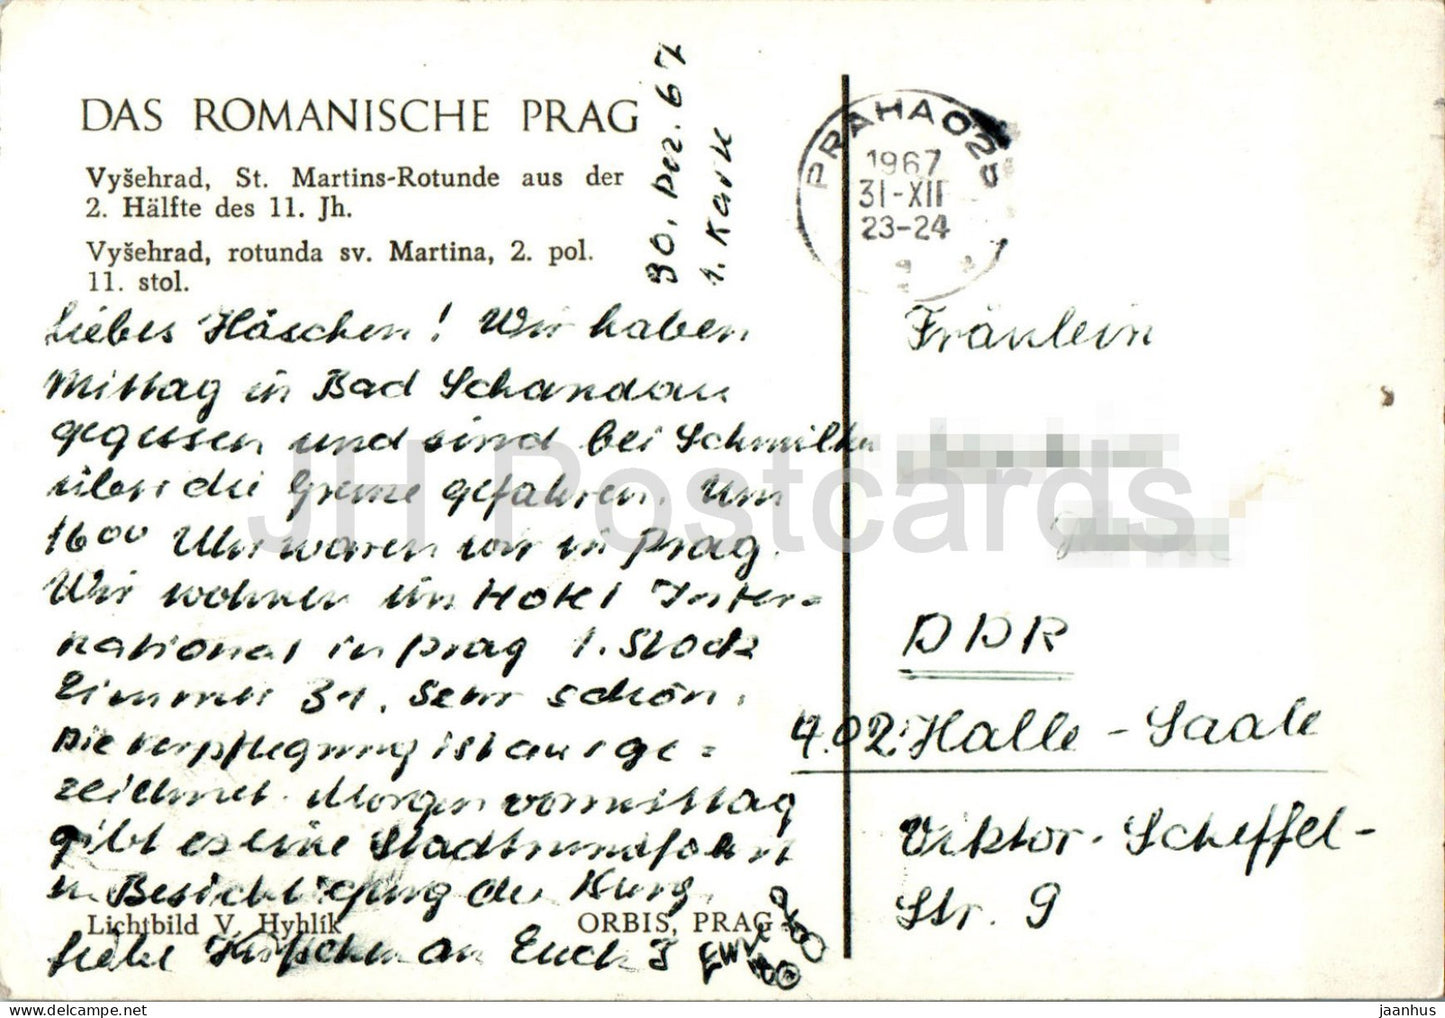 DAS ROMANISCHE PRAG
Vyšehrad, St. Martins-Rotunde aus der
2. Hälfte des 11. Jh.
Vyšehrad, rotunda sv. Martina, 2. pol.
11. stol.
30. Dez. 67
1. Karte
Liebes Häschen! Wir haben
Mittag in Bad Schandau
gegessen und sind bei Schmilka
über die Grenze gefahren. Um
16⁰⁰ Uhr waren wir in Prag.
Wir wohnen im Hotel Inter=
national in Prag 1. Stock
Zimmer 31. Sehr schön.
Die Verpflegung ist ausge=
zeichnet. Morgen vormittag
gibt es eine Stadtrundfahrt
u. Besichtigung der Burg.
Lichtbild V. Hyhlík
ORBIS, PRAG
Liebe Küßchen an Euch 3
PRAHA 025
1967
31-XII
23-24
Fräulein
DDR
402 Halle - Saale
Viktor-Scheffel-
Str. 9
JH Postcards
www.delcampe.net
jaanhus